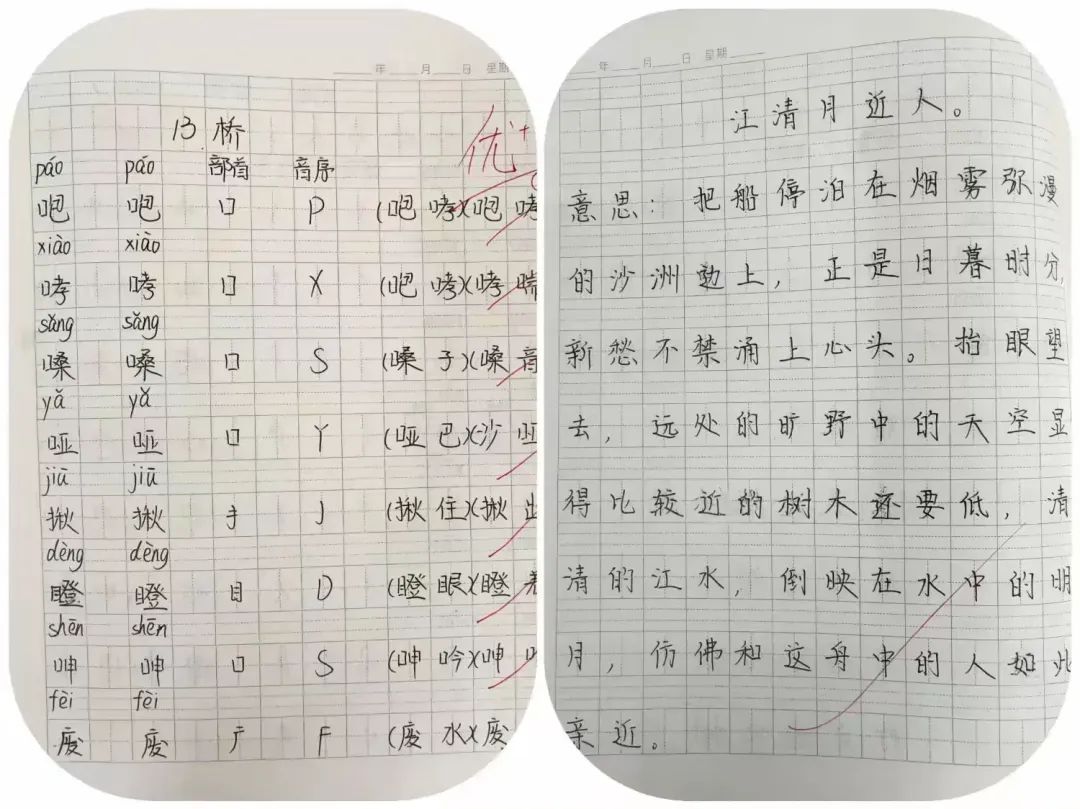 年 月 日 星期
13 桥
优+
páo páo 部首 音序
咆 咆 口 P (咆哮)(咆哮
xiào xiào
哮 哮 口 X (咆哮)(哮喘
sǎng sǎng
嗓 嗓 口 S (嗓子)(嗓音
yǎ yǎ
哑 哑 口 Y (哑巴)(沙哑
jiū jiū
揪 揪 扌 J (揪住)(揪出
dèng dèng
瞪 瞪 目 D (瞪眼)(瞪着
shēn shēn
呻 呻 口 S (呻吟)(呻
fèi fèi
废 废 广 F (废水)(废
年 月 日 星期
江清月近人。
意思：把船停泊在烟雾弥漫
的沙洲边上，正是日暮时分，
新愁不禁涌上心头。抬眼望
去，远处的旷野中的天空显
得比较近的树木还要低，清
清的江水，倒映在水中的明
月，仿佛和这舟中的人如此
亲近。